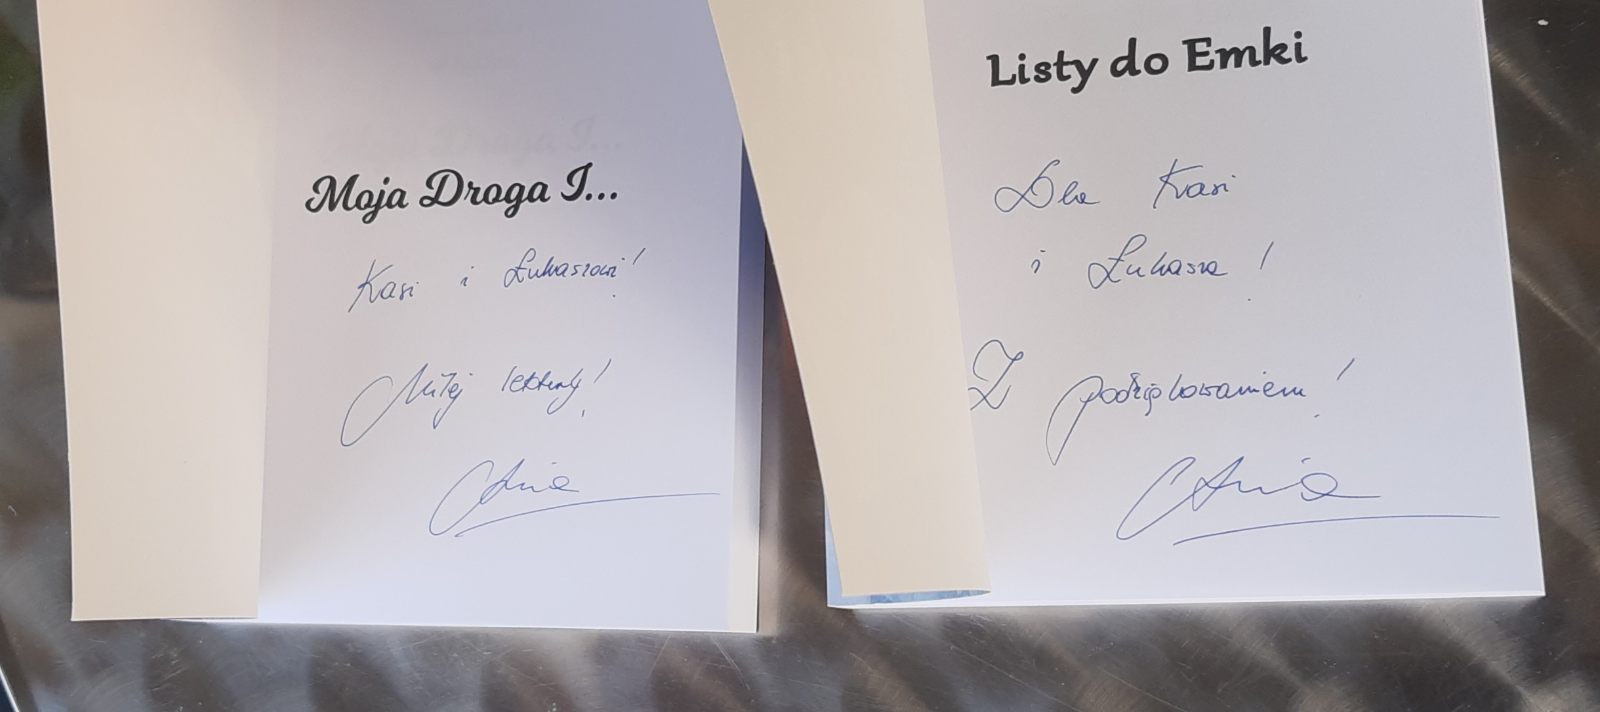 Moja Droga I...
Kasi i Łukaszowi!
Miłej lektury!
Ania
Listy do Emki
Dla Kasi
i Łukasza!
Z podziękowaniem!
Ania